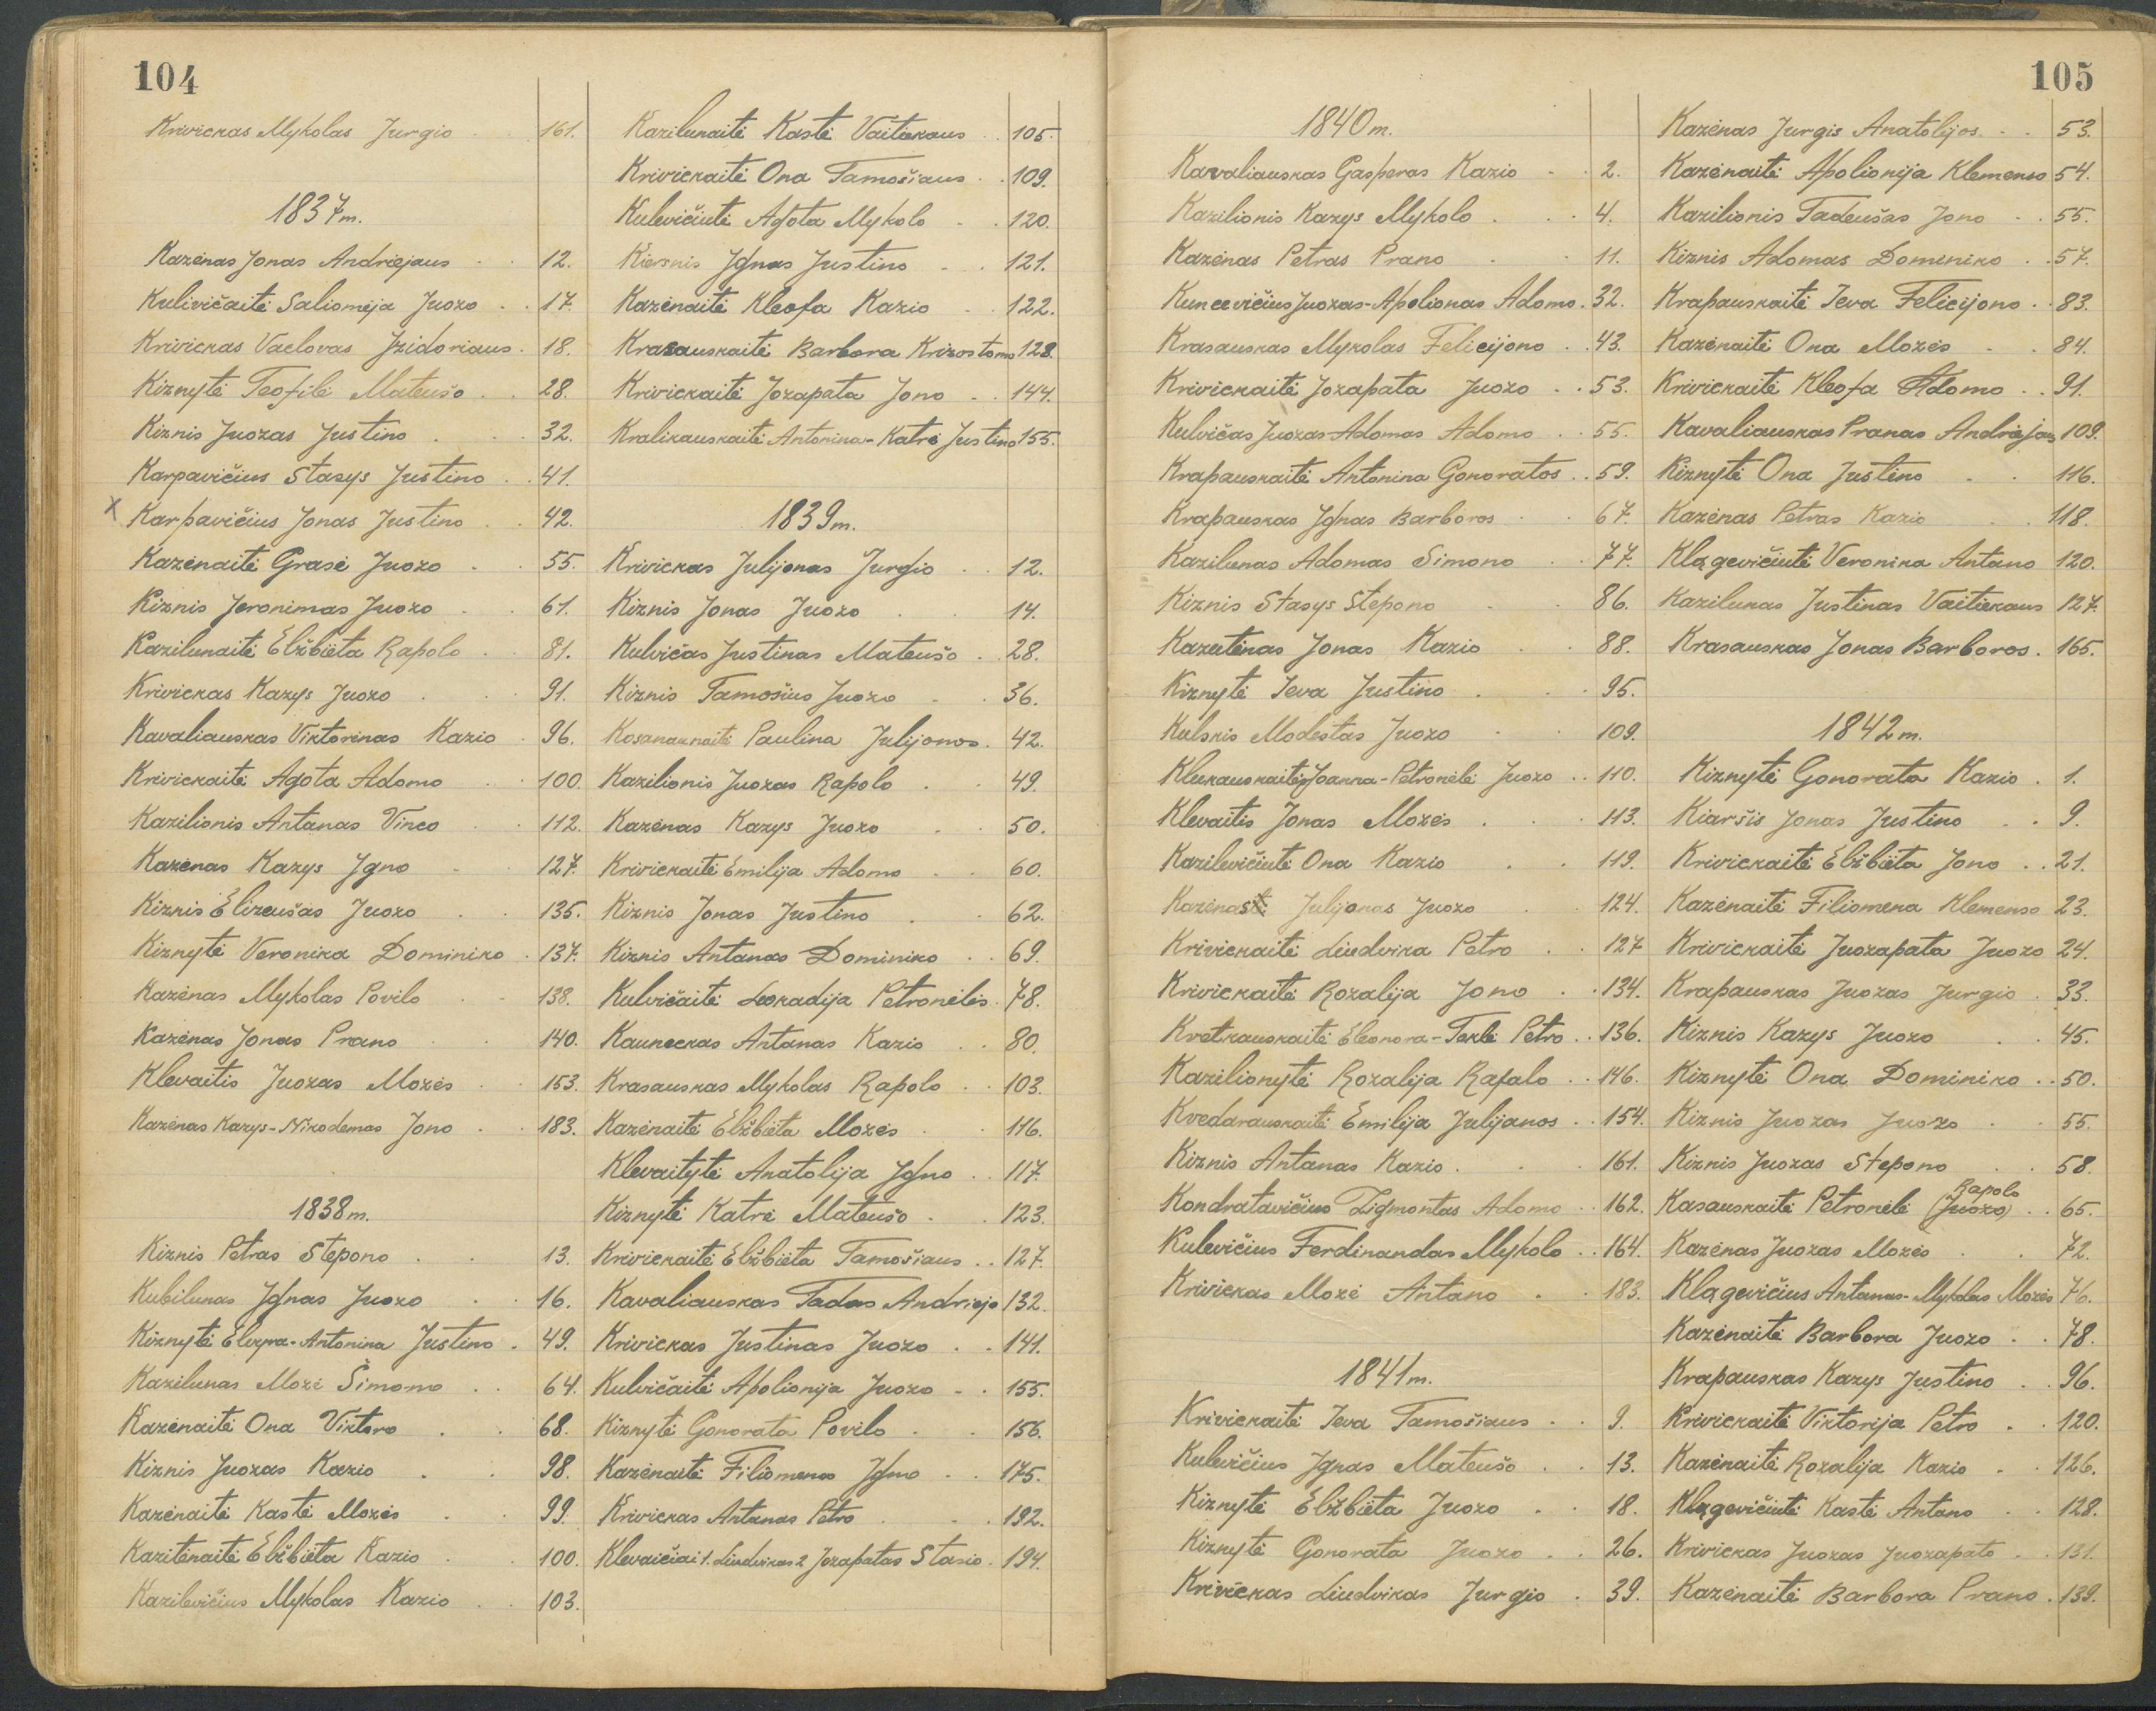 104
Krivickas Mykolas Jurgio 161.
1837 m.
Kazėnas Jonas Andriejaus 12.
Kulivičaitė Saliomėja Juozo 17.
Krivickas Vaclovas Izidoriaus 18.
Kiznytė Teofilė Mateušo 28.
Kiznis Juozas Justino 32.
Karpavičius Stasys Justino 41.
x Karpavičius Jonas Justino 42.
Kazėnaitė Grasė Juozo 55.
Kiznis Jeronimas Juozo 61.
Kazilunaitė Elžbieta Rapolo 81.
Krivickas Kazys Juozo 91.
Kavaliauskas Viktorinas Kazio 96.
Krivickaitė Agota Adomo 100.
Kazilionis Antanas Vinco 112.
Kazėnas Kazys Igno 127.
Kiznis Elizeušas Juozo 135.
Kiznytė Veronika Dominiko 137.
Kazėnas Mykolas Povilo 138.
Kazėnas Jonas Prano 140.
Klevaitis Juozas Mozės 153.
Kazėnas Kazys-Nikodemas Jono 183.
1838 m.
Kiznis Petras Stepono 13.
Kubilunas Ignas Juozo 16.
Kiznytė Elvyra-Antonina Justino 49.
Kazilunas Mozė Šimono 64.
Kazėnaitė Ona Viktoro 68.
Kiznis Juozas Kazio 98.
Kazėnaitė Kastė Mozės 99.
Kazitėnaitė Elžbieta Kazio 100.
Kazilevičius Mykolas Kazio 103.
Kazilunaitė Kastė Vaitiekaus 105.
Krivickaitė Ona Tamošiaus 109.
Kulevičiutė Agota Mykolo 120.
Kiersnis Ignas Justino 121.
Kazėnaitė Kleofa Kazio 122.
Krasauskaitė Barbora Krizostomo 128.
Krivickaitė Jozapata Jono 144.
Kralikauskaitė Antonina-Katrė Justino 155.
1839 m.
Krivickas Julijonas Jurgio 12.
Kiznis Jonas Juozo 14.
Kulvičas Justinas Mateušo 28.
Kiznis Tamošius Juozo 36.
Paulina Julijonos 42.
Kazilionis Juozas Rapolo 49.
Kazėnas Kazys Juozo 50.
Krivickaitė Emilija Adomo 60.
Kiznis Jonas Justino 62.
Kiznis Antanas Dominiko 69.
Kulvičaitė Leokadija Petronėlės 78.
Kauneckas Antanas Kazio 80.
Krasauskas Mykolas Rapolo 103.
Kazėnaitė Elžbieta Mozės 116.
Klevaitytė Anatolija Igno 117.
Kiznytė Katrė Mateušo 123.
Krivickaitė Elžbieta Tamošiaus 127.
Kavaliauskas Tadas Andriejo 132.
Krivickas Justinas Juozo 141.
Kulvičaitė Apolionija Juozo 155.
Kiznytė Gonorata Povilo 156.
Kazėnaitė Filiomena Igno 175.
Krivickas Antanas Petro 192.
Klevaičiai 1. Liudvikas 2 Jozapatas Stasio 194.
105
1840 m.
Kavaliauskas Gasperas Kazio 2.
Kazilionis Kazys Mykolo 4.
Kazėnas Petras Prano 11.
Kuncevičius Juozas-Apolionas Adomo 32.
Krasauskas Mykolas Felicijono 43.
Krivickaitė Jozapata Juozo 53.
Kulvičas Juozas-Adomas Adomo 55.
Krapauskaitė Antonina Gonoratos 59.
Krapauskas Ignas Barboros 67.
Kazilunas Adomas Simono 77.
Kiznis Stasys Stepono 86.
Kazutėnas Jonas Kazio 88.
Kiznytė Ieva Justino 95.
Kulsnis Modestas Juozo 109.
Joanna-Petronėlė Juozo 110.
Klevaitis Jonas Mozės 113.
Kazilevičiutė Ona Kazio 119.
Kazėnas Julijonas Juozo 124.
Krivickaitė Liudvika Petro 127
Krivickaitė Rozalija Jono 134.
Kvetkauskaitė Eleonora-Teklė Petro 136.
Kazilionytė Rozalija Rafalo 146.
Kvedarauskaitė Emilija Julijanos 154.
Kiznis Antanas Kazio 161.
Kondratavičius Zigmontas Adomo 162.
Kulevičius Ferdinandas Mykolo 164.
Krivickas Mozė Antano 183.
1841 m.
Krivickaitė Ieva Tamošiaus 9.
Kulevičius Ignas Mateušo 13.
Kiznytė Elžbieta Juozo 18.
Kiznytė Gonorata Juozo 26.
Krivickas Liudvikas Jurgio 39.
Kazėnas Jurgis Anatolijos 53.
Kazėnaitė Apolionija Klemenso 54.
Kazilionis Tadeušas Jono 55.
Kiznis Adomas Dominiko 57.
Krapauskaitė Ieva Felicijono 83.
Kazėnaitė Ona Mozės 84.
Krivickaitė Kleofa Adomo 91.
Kavaliauskas Pranas Andriejaus 109.
Kiznytė Ona Justino 116.
Kazėnas Petras Kazio 118.
Klagevičiutė Veronika Antano 120.
Kazilunas Justinas Vaitiekaus 127.
Krasauskas Jonas Barboros 165.
1842 m.
Kiznytė Gonorata Kazio 1.
Kiaršis Jonas Justino 9.
Krivickaitė Elžbieta Jono 21.
Kazėnaitė Filiomena Klemenso 23.
Krivickaitė Juozapata Juozo 24.
Krapauskas Juozas Jurgio 33.
Kiznis Kazys Juozo 45.
Kiznytė Ona Dominiko 50.
Kiznis Juozas Juozo 55.
Kiznis Juozas Stepono 58.
Rapolo
Kasauskaitė Petronėlė (Juozo) 65.
Kazėnas Juozas Mozės 72.
Klagevičius Antanas-Mykolas Mozės 76.
Kazėnaitė Barbora Juozo 78.
Krapauskas Kazys Justino 96.
Krivickaitė Viktorija Petro 120.
Kazėnaitė Rozalija Kazio 126.
Klagevičiutė Kastė Antano 128.
Krivickas Juozas Juozapato 131.
Kazėnaitė Barbora Prano 139.